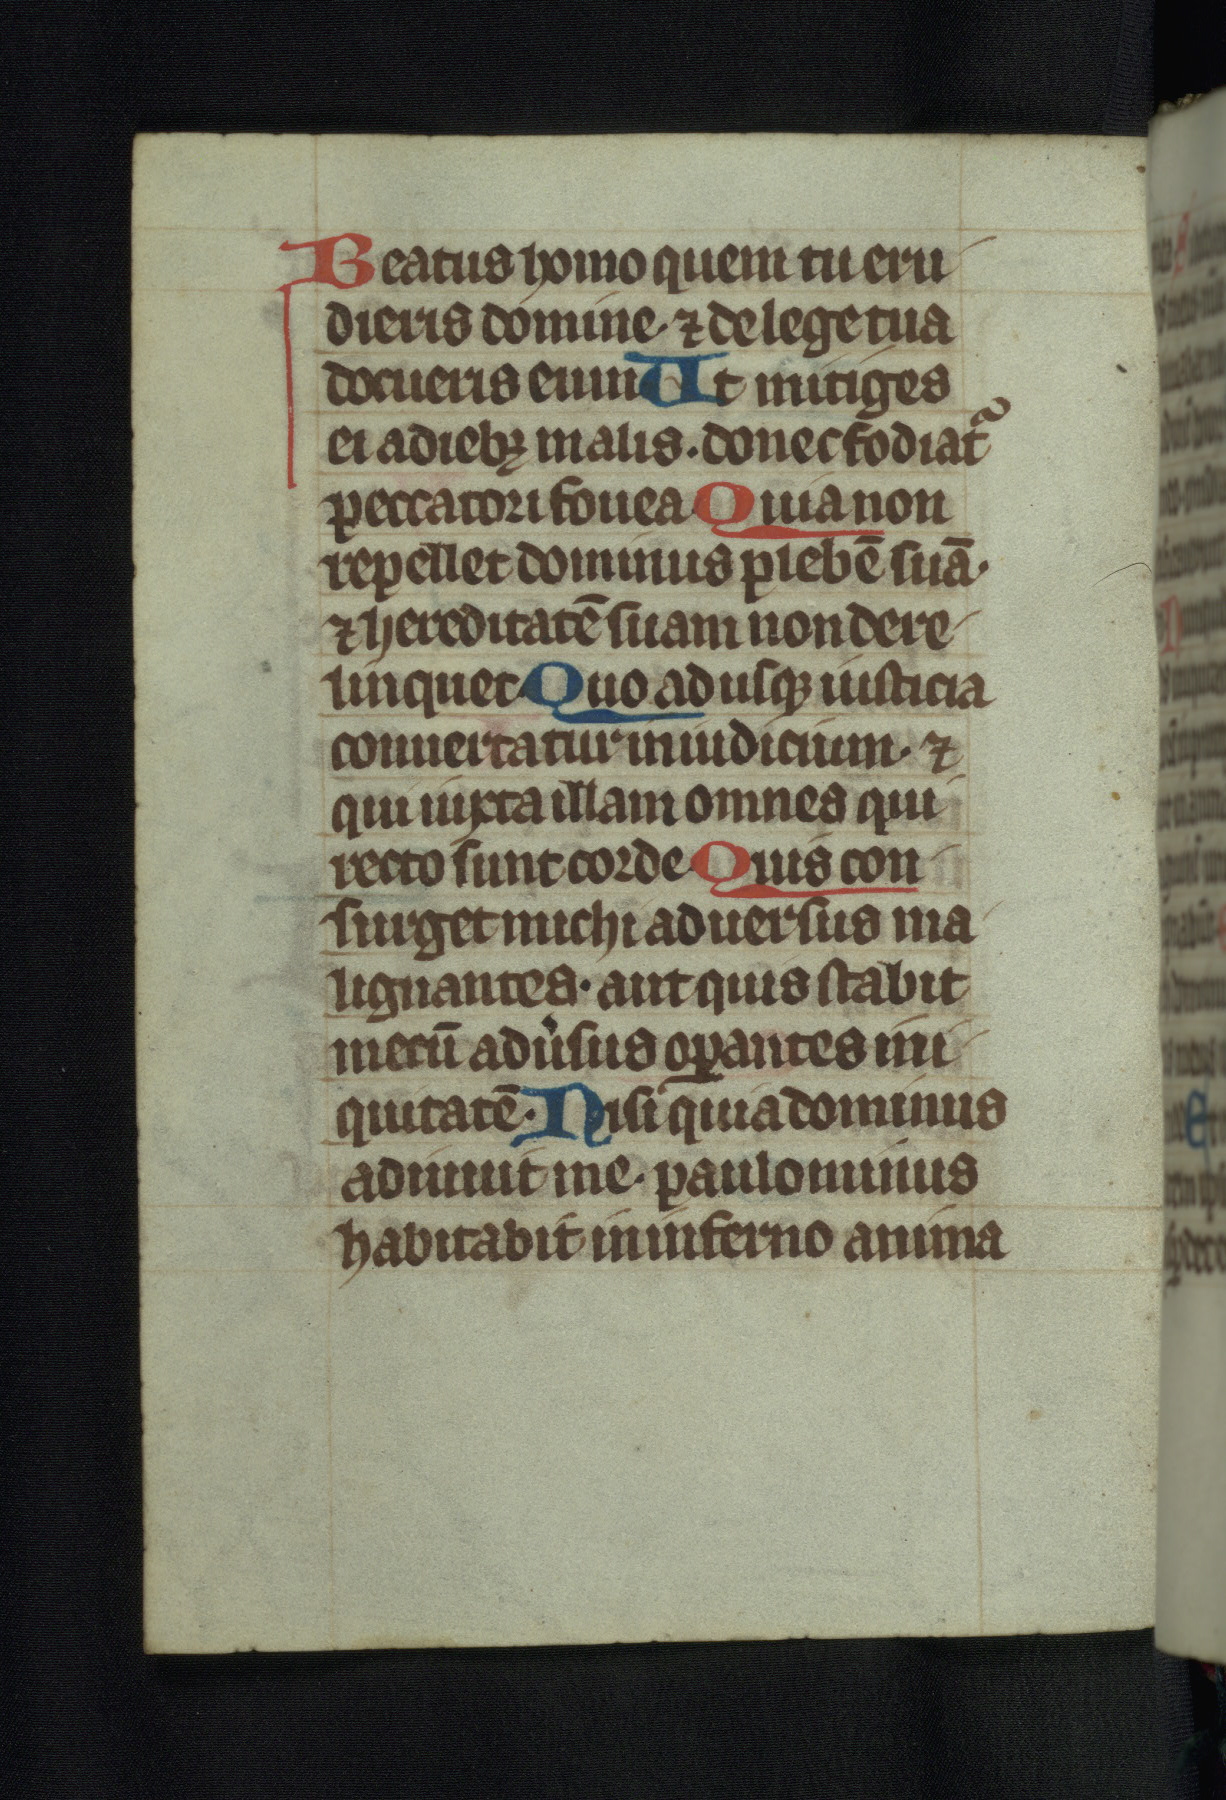 Beatus homo quem tu eru
dieris domine. ⁊ de lege tua
docueris eum Ut mitiges
ei a dieb⁊ malis. donec fodiat᷑
peccatori fouea. Quia non
repellet dominus plebē suā.
⁊ hereditatē suam non dere
linquet. Quo adusqꝫ iusticia
conuertatur in iudicium. ⁊
qui iuxta illam omnes qui
recto sunt corde. Quis con
surget michi aduersus ma
lignantes. aut quis stabit
mecū adu͛sus oꝑantes ini
quitatē. Nisi quia dominus
adiuuit me. paulominus
habitabit in inferno anima